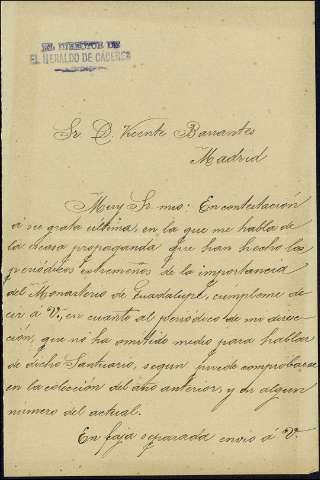 EL DIRECTOR DE
EL HERALDO DE CACERES
Sr. D. Vicente Barrantes
Madrid
Muy Sr. mio: En contestación
á su grata última, en la que me habla de
la escasa propaganda que han hecho los
periódicos extremeños de la importancia
del Monasterio de Guadalupe, cumpleme de-
cir á V., en cuanto al periódico de mi direc-
ción, que no ha omitido medio para hablar
de dicho Santuario, segun puede comprobarse
en la colección del año anterior, y en algun
numero del actual.
En faja separada envio á V.